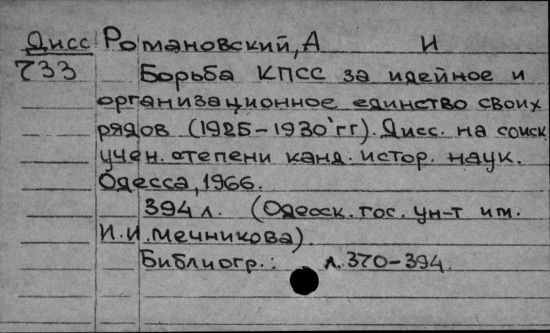 Дисс Романовский, А И
733 Борьба КПСС за идейное и
организационное единство своих
рядов (1925-1930'гг). Дисс. на соиск
учен. степени канд. истор. наук.
Одесса, 1966.
394 л. (Одесск. гос. ун-т им.
И.И. Мечникова).
Библиогр.: л. 370-394.